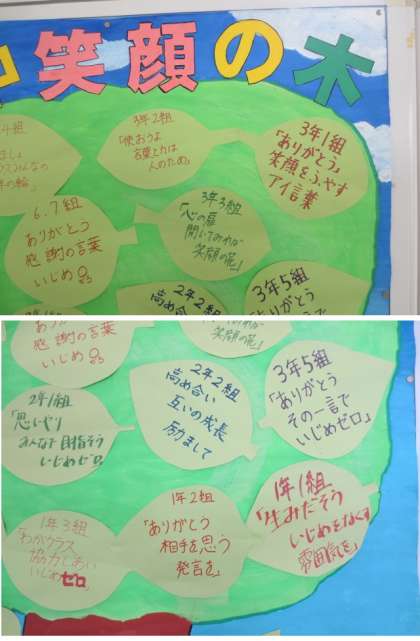 笑顔の木
4組
みんなの
の輪」
3年2組
「使おうよ
言葉と力は
人のため。」
3年1組
「ありがとう」
笑顔をふやす
アイ言葉
6.7組
ありがとう
感謝の言葉
いじめ0
3年3組
「心の扉
開いてみれば
笑顔の花」
2年2組
高め合い
3年5組
「ありがとう
ありがとう
感謝の言葉
いじめ0
笑顔の花」
2年1組
「思いやり
みんなで目指そう
いじめゼロ。
2年2組
高め合い
互いの成長
励まして
3年5組
「ありがとう
その一言で
いじめゼロ」
1年3組
「わがクラス
協力しあい
いじめゼロ
1年2組
「ありがとう
相手を思う
発言を」
1年1組
「生みだそう
いじめをなくす
雰囲気を」